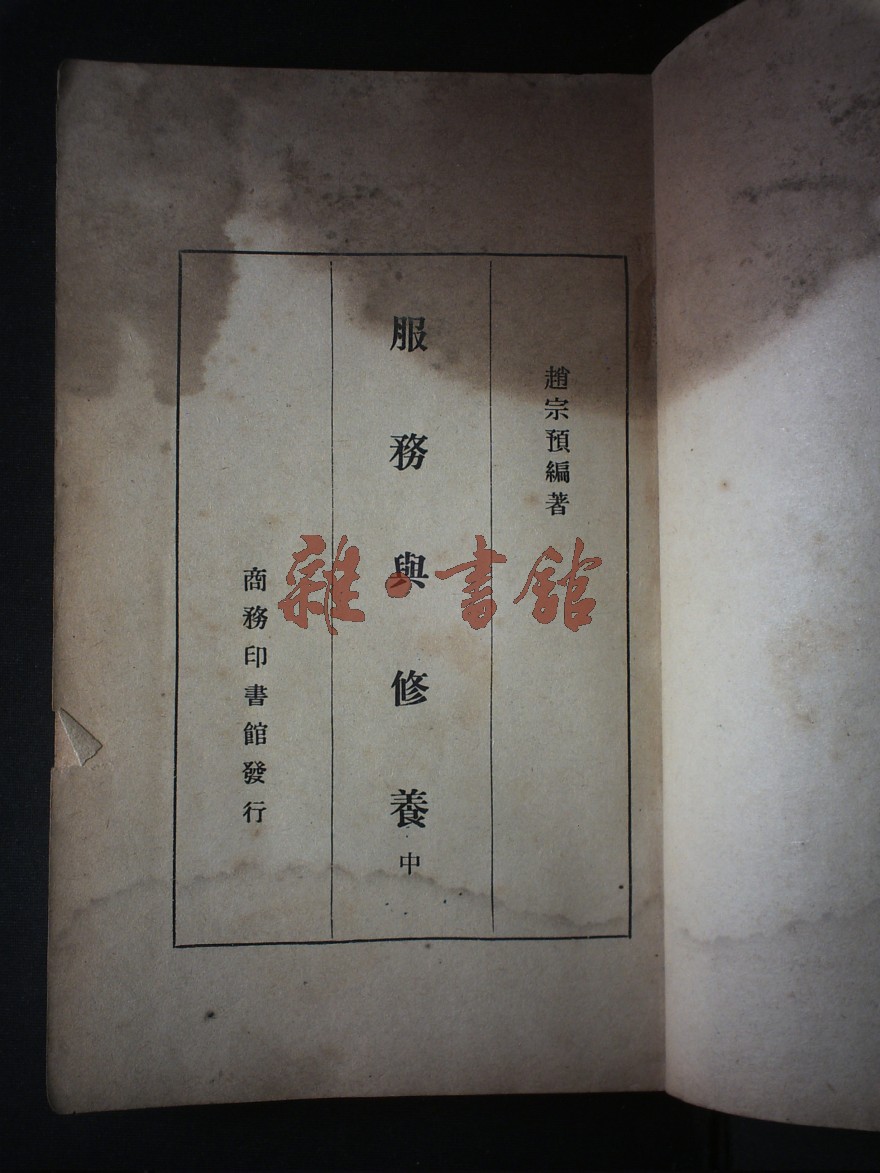 趙宗預編著
服務與修養 中
商務印書館發行
雜·書館